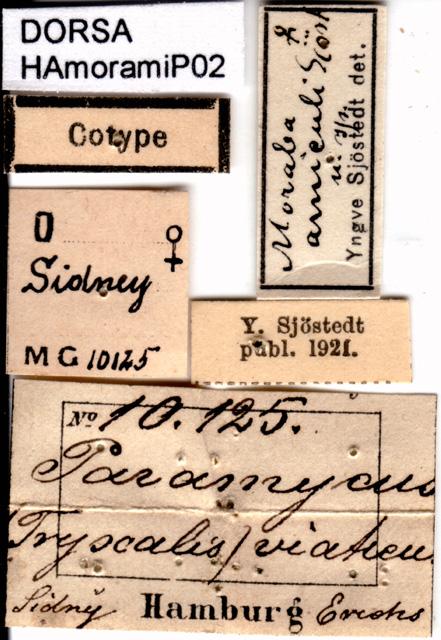 DORSA
HAmoramiP02
Cotype
Sidney ♀
MG 10125
Moraba ♀
amiculi Sjöst
n.
Yngve Sjöstedt det.
Y. Sjöstedt
publ. 1921.
No 10.125.
Paramycus
(Tryxalis) viaticu
Sidney Hamburg